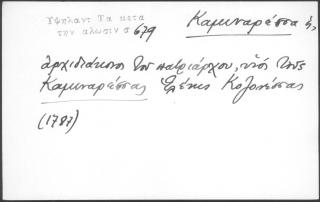 Υψηλαντ Τα μετα
την αλωσιν σ 679
Καμιναρέσσα ἡ,
ἀρχιδιάκονος τοῦ πατριάρχου, υἱός τῆς
Καμιναρέσσας Ἑλένης
(1787)